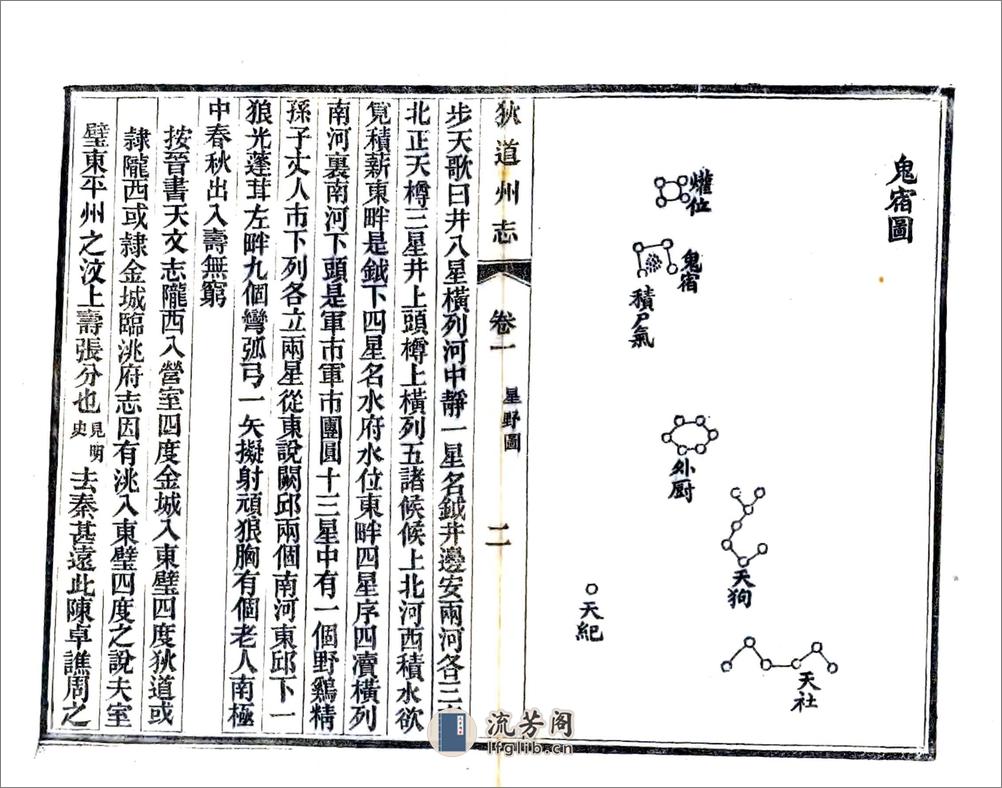 鬼宿圖
爟位
鬼宿
積尸氣
外厨
天狗
天社
天紀
狄道州志
卷一
星野圖
二
步天歌曰井八星橫列河中靜一星名鉞井邊安兩河各三
北正天樽三星井上頭樽上橫列五諸候候上北河西積水欲
覓積薪東畔是鉞下四星名水府水位東畔四星序四瀆橫列
南河裏南河下頭是軍市軍市團圓十三星中有一個野鷄精
孫子丈人市下列各立兩星從東說闕邱兩個南河東邱下一
狼光蓬茸左畔九個彎弧弓一矢擬射頑狼胸有個老人南極
中春秋出入壽無窮
按晉書天文志隴西入營室四度金城入東壁四度狄道或
隸隴西或隸金城臨洮府志因有洮入東壁四度之說夫室
壁東平州之汶上壽張分也見明史去秦甚遠此陳卓譙周之
流芳阁
lfglib.cn